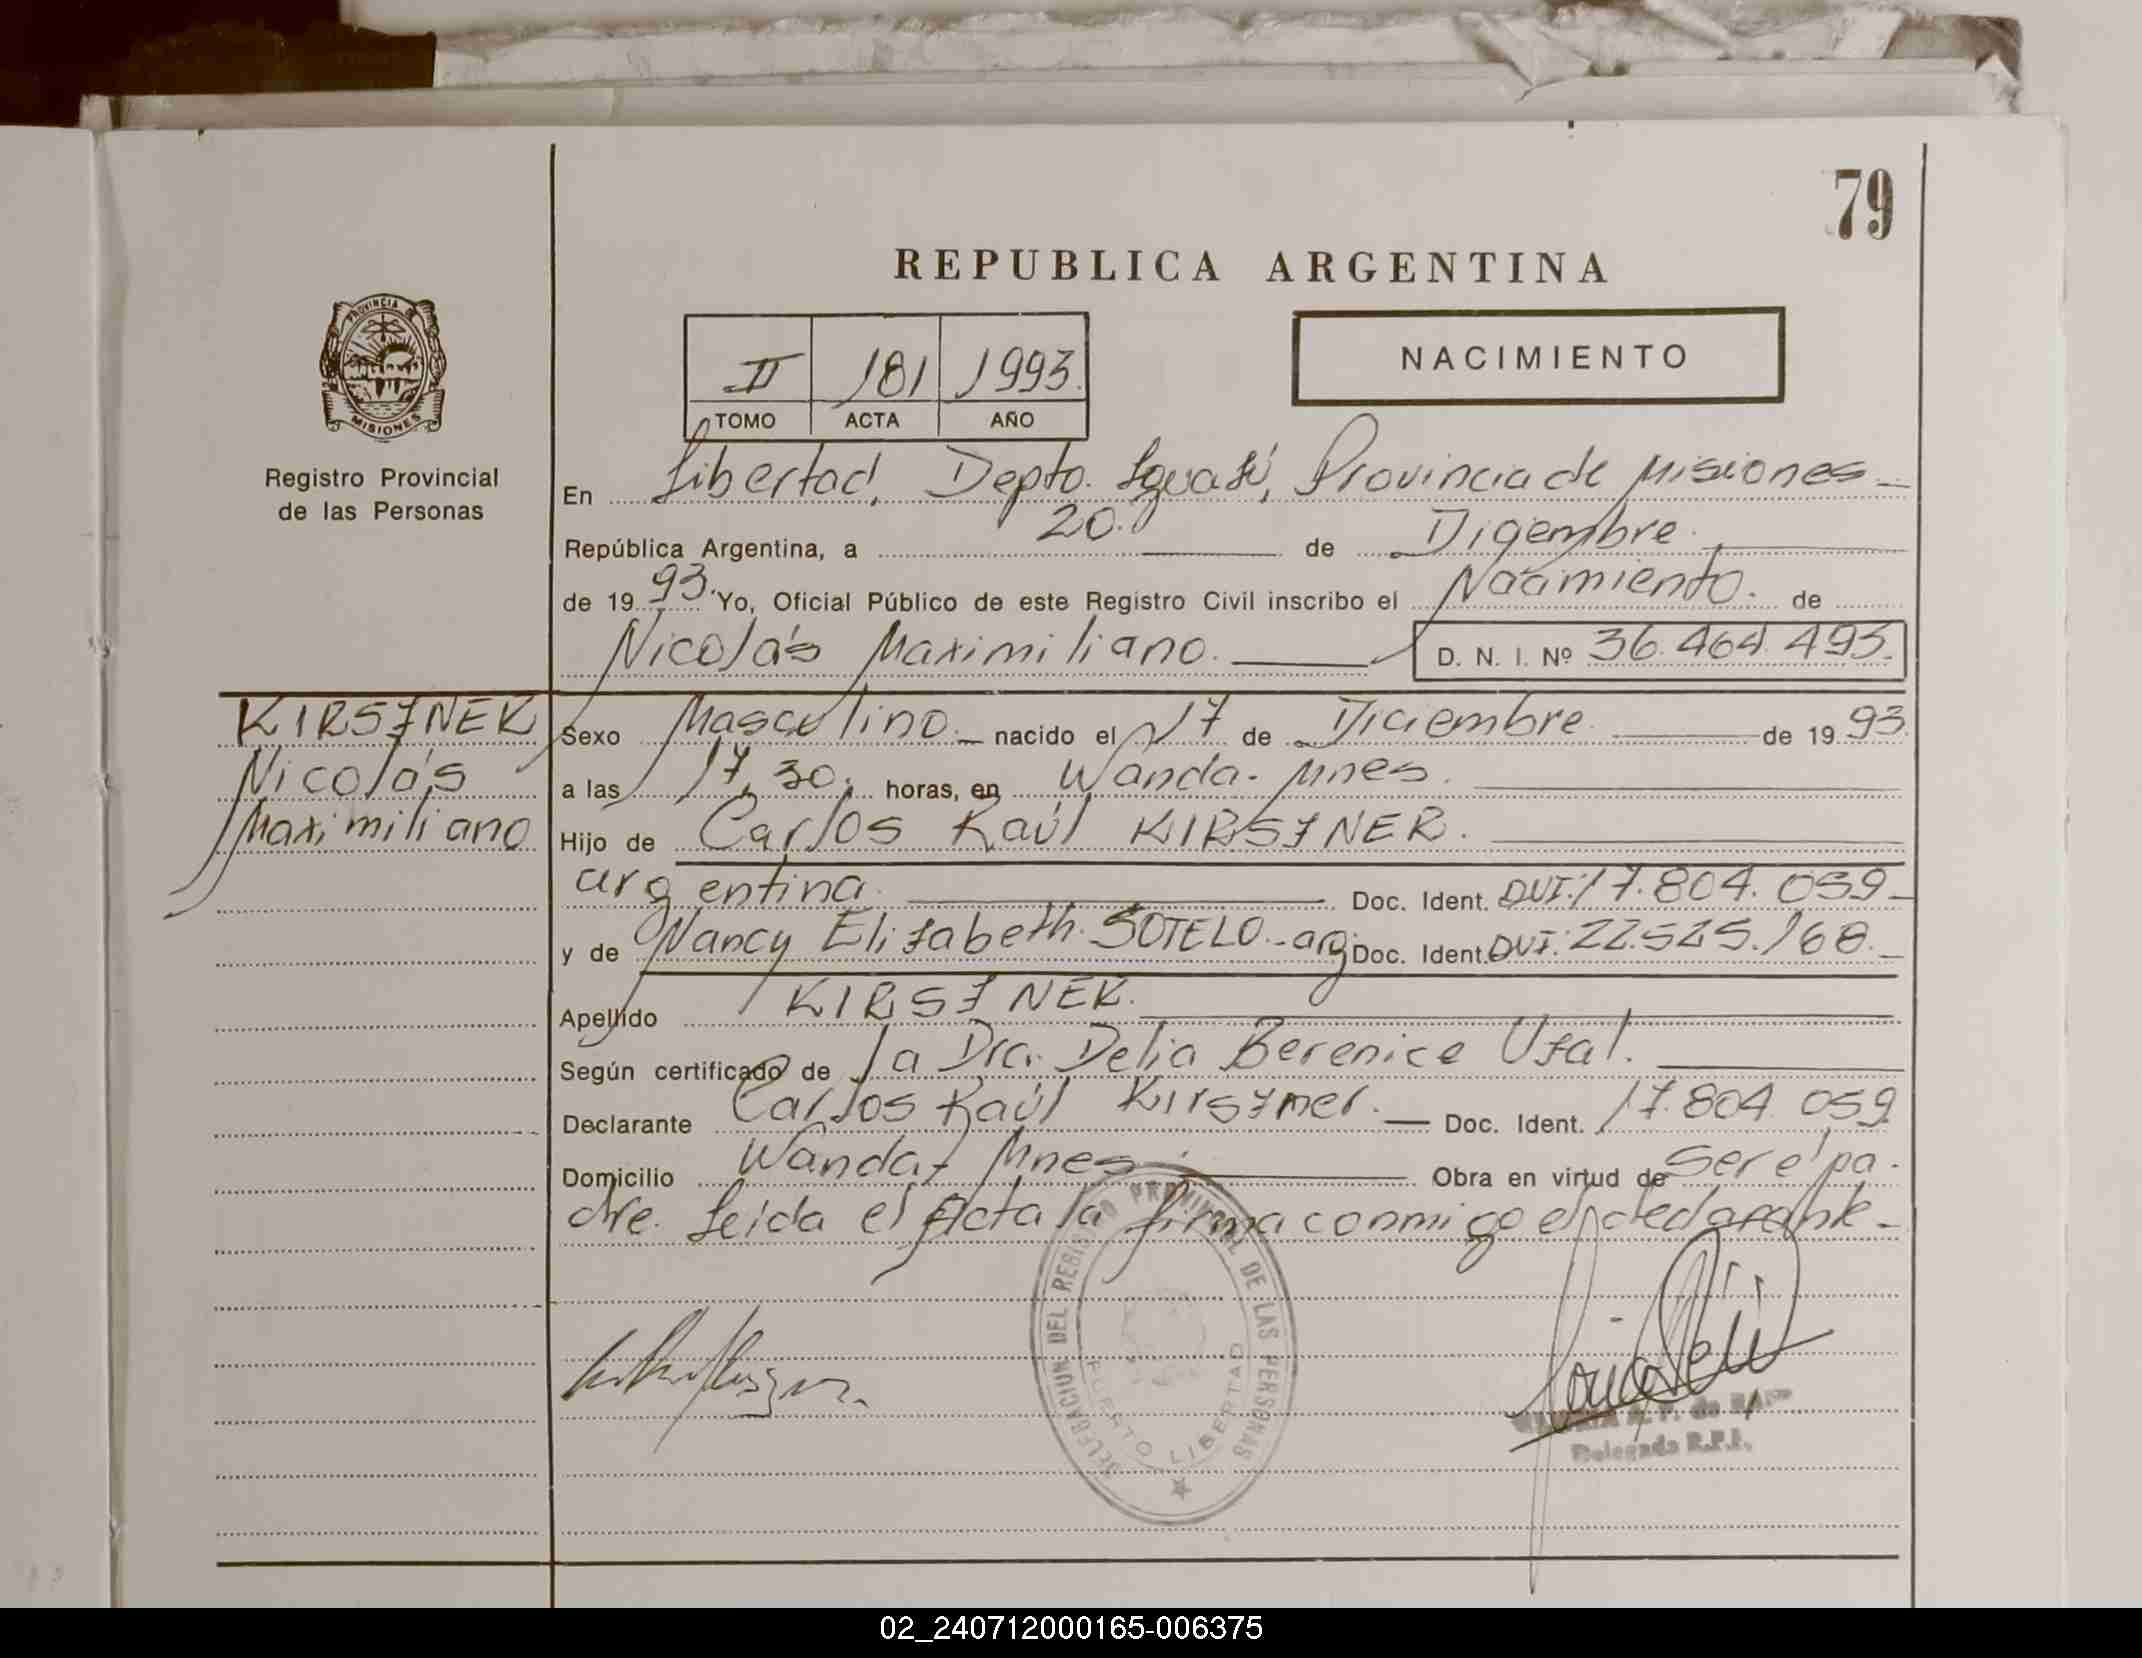 79
REPUBLICA ARGENTINA
PROVINCIA DE
MISIONES
Registro Provincial
de las Personas
II 181 1993.
TOMO ACTA AÑO
NACIMIENTO
En Libertad, Depto. Iguazú, Provincia de Misiones
República Argentina, a 20. de Diciembre.
de 19 93. Yo, Oficial Público de este Registro Civil inscribo el Nacimiento. de
Nicolás Maximiliano. D. N. I. Nº 36.464.493.
KIRSZNER
Nicolás
Maximiliano
Sexo Masculino. nacido el 17 de Diciembre de 19 93
a las 17,30. horas, en Wanda - Mnes.
Hijo de Carlos Raúl KIRSZNER.
argentina. Doc. Ident. DUI: 17.804.059
y de Nancy Elizabeth SOTELO - arg Doc. Ident. DUI: 22.525.168.
Apellido KIRSZNER.
Según certificado de la Dra. Delia Berenice Uzal.
Declarante Carlos Raúl Kirszner. Doc. Ident. 17.804.059
Domicilio Wanda, Mnes Obra en virtud de ser el pa-
dre. Leída el Acta la firma conmigo el declarante
DELEGACION DEL REGISTRO PROVINCIAL DE LAS PERSONAS
PUERTO LIBERTAD
Delegada R.P.P.
02_240712000165-006375